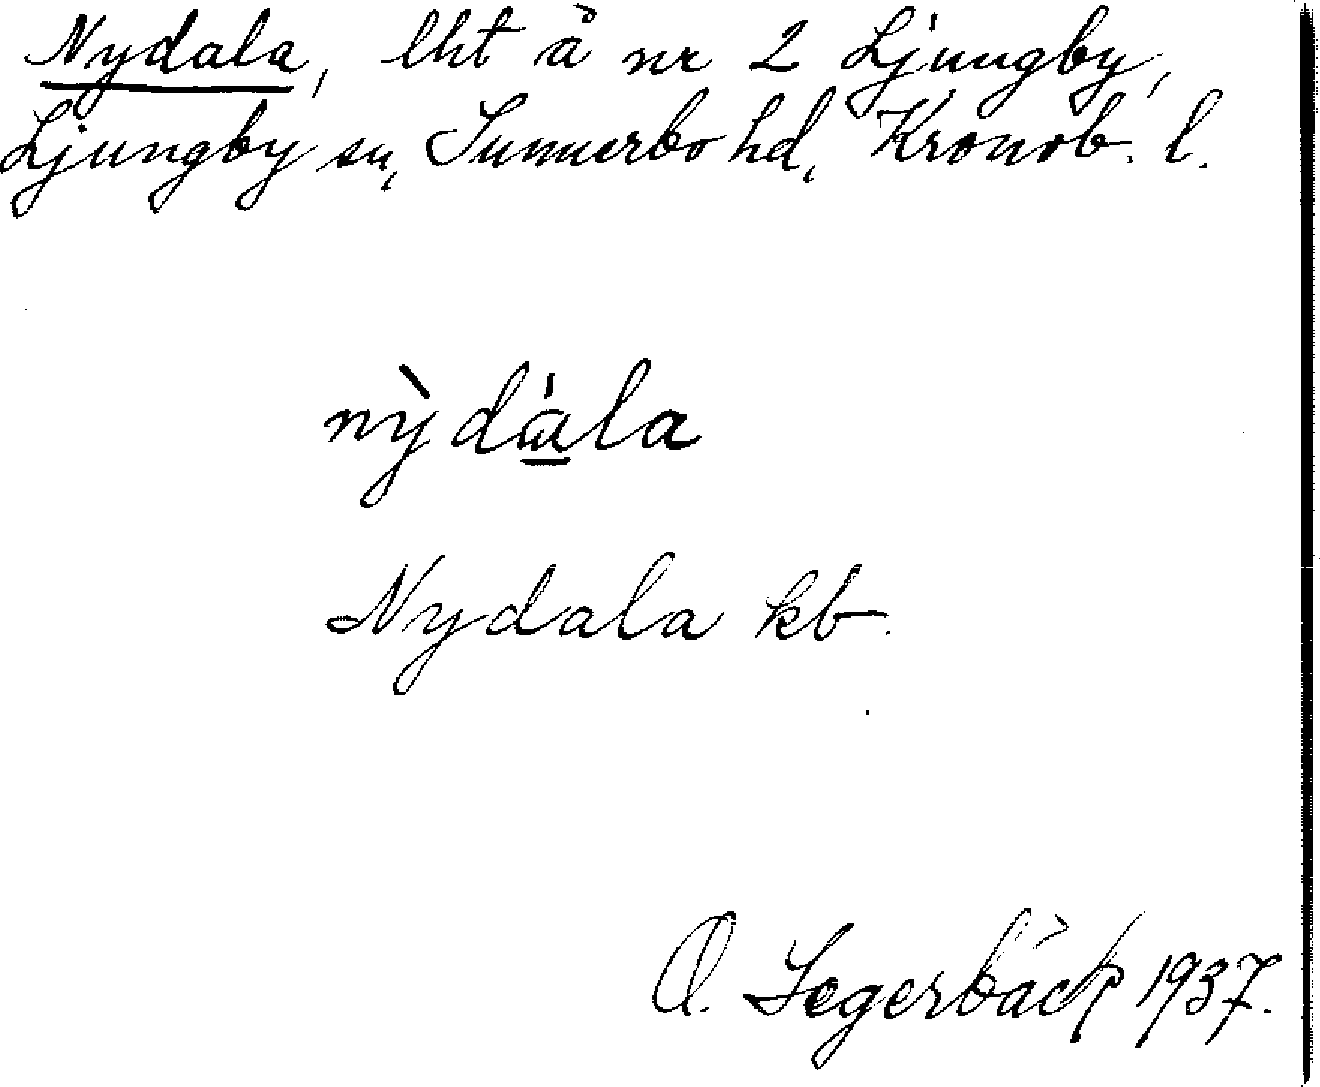 Nydala, lht å nr 2 Ljungby,
Ljungby sn, Sunnerbo hd, Kronob. l.
nỳda̲̍la
Nydala kb.
O. Segerbäck 1937.